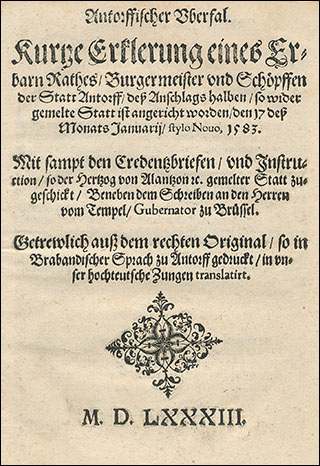 Antorffischer Vberfal.
Kurtze Erklerung eines Er-
barn Rathes/ Burgermeister vnd Schöpffen
der Statt Antorff/ deß Anschlags halben/ so wider
gemelte Statt ist angericht worden/ den 17 deß
Monats Januarij/ stylo Nouo, 1583.
Mit sampt den Credentzbriefen/ vnd Instru-
ction/ so der Hertzog von Alantzon ꝛc. gemelter Statt zu-
geschickt/ Beneben dem Schreiben an den Herren
vom Tempel/ Gubernator zu Brüssel.
Getrewlich auß dem rechten Original/ so in
Brabandischer Sprach zu Antorff gedruckt/ in vn-
ser hochteutsche Zungen translatirt.
M. D. LXXXIII.